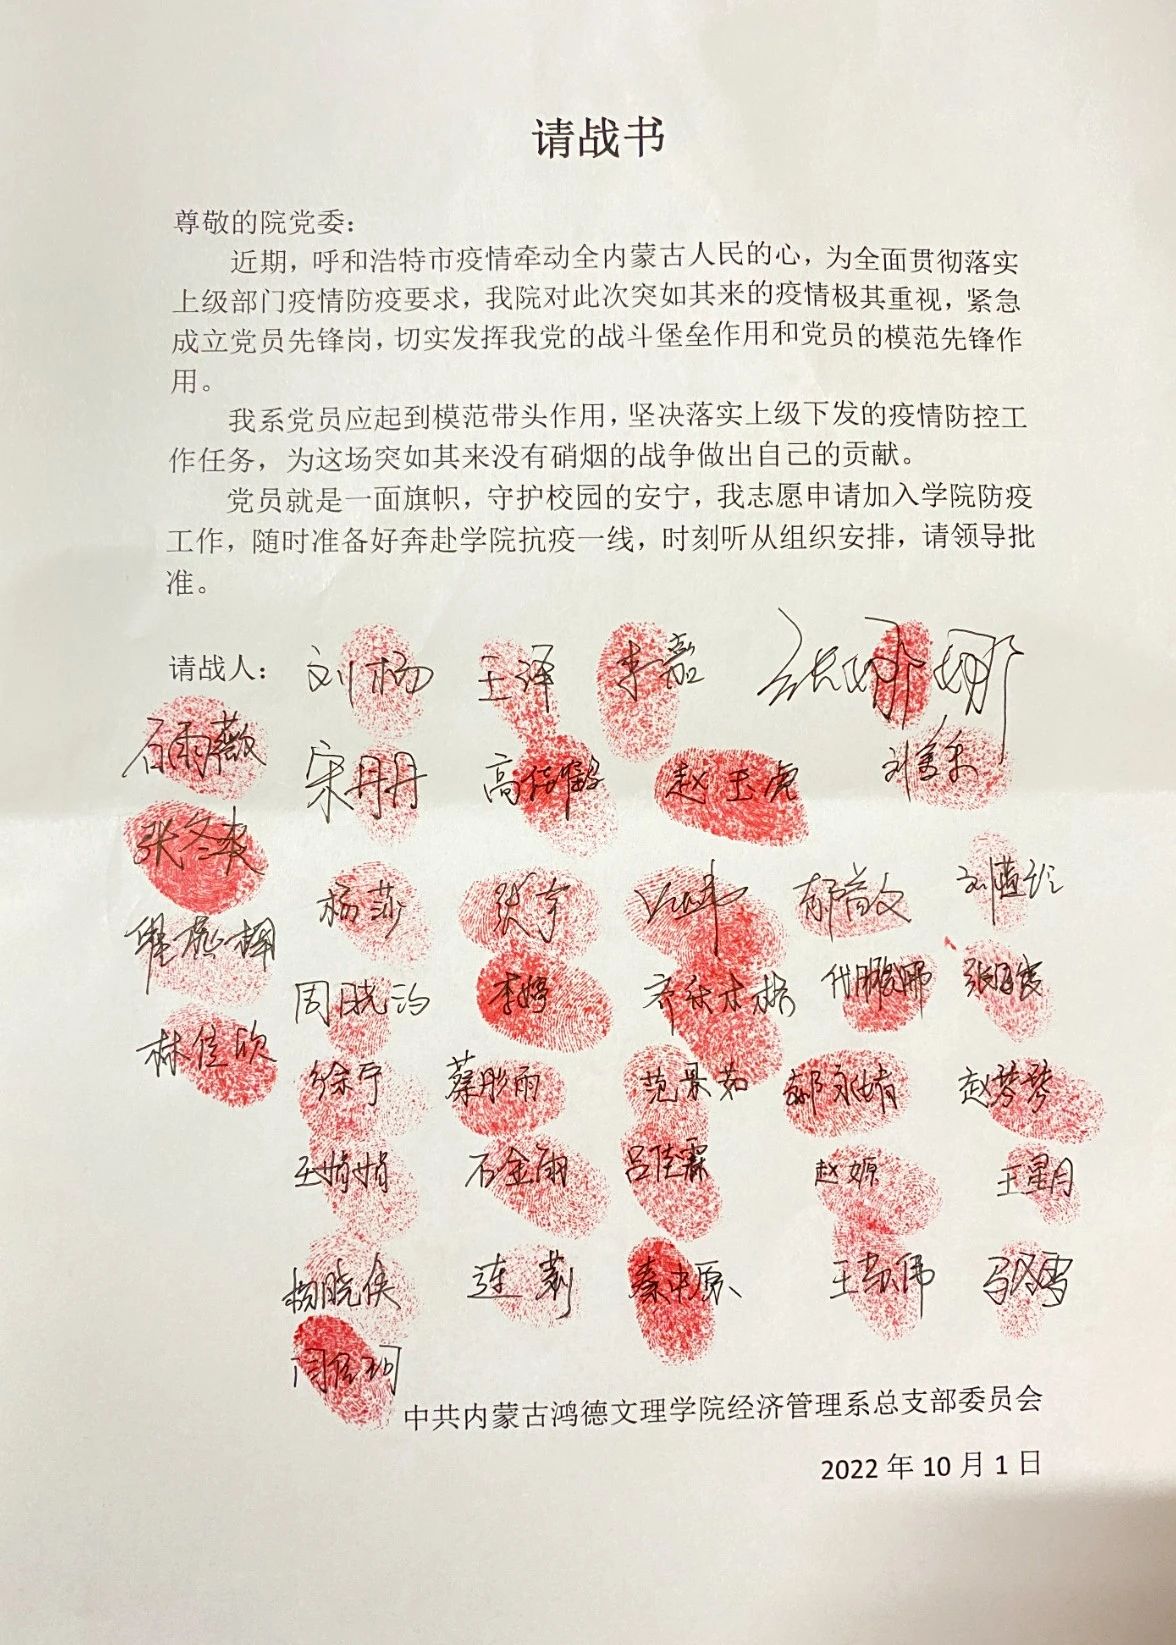 请战书
尊敬的院党委：
近期，呼和浩特市疫情牵动全内蒙古人民的心，为全面贯彻落实
上级部门疫情防疫要求，我院对此次突如其来的疫情极其重视，紧急
成立党员先锋岗，切实发挥我党的战斗堡垒作用和党员的模范先锋作
用。
我系党员应起到模范带头作用，坚决落实上级下发的疫情防控工
作任务，为这场突如其来没有硝烟的战争做出自己的贡献。
党员就是一面旗帜，守护校园的安宁，我志愿申请加入学院防疫
工作，随时准备好奔赴学院抗疫一线，时刻听从组织安排，请领导批
准。
请战人： 刘杨 王泽 李嘉 张娜娜
石雨薇 宋丹丹 赵玉虎
张冬爽 杨莎 张宇 郝高文
周晓 李婷 张丽霞
林佳欣 徐宁 蔡彤雨 范景茹 郝永婧 赵梦琴
王娟娟 石金雨 吕佳霖 赵嫄 王星月
杨晓侠 连莉 秦中原 王志伟 马冬雪
中共内蒙古鸿德文理学院经济管理系总支部委员会
2022 年 10 月 1 日